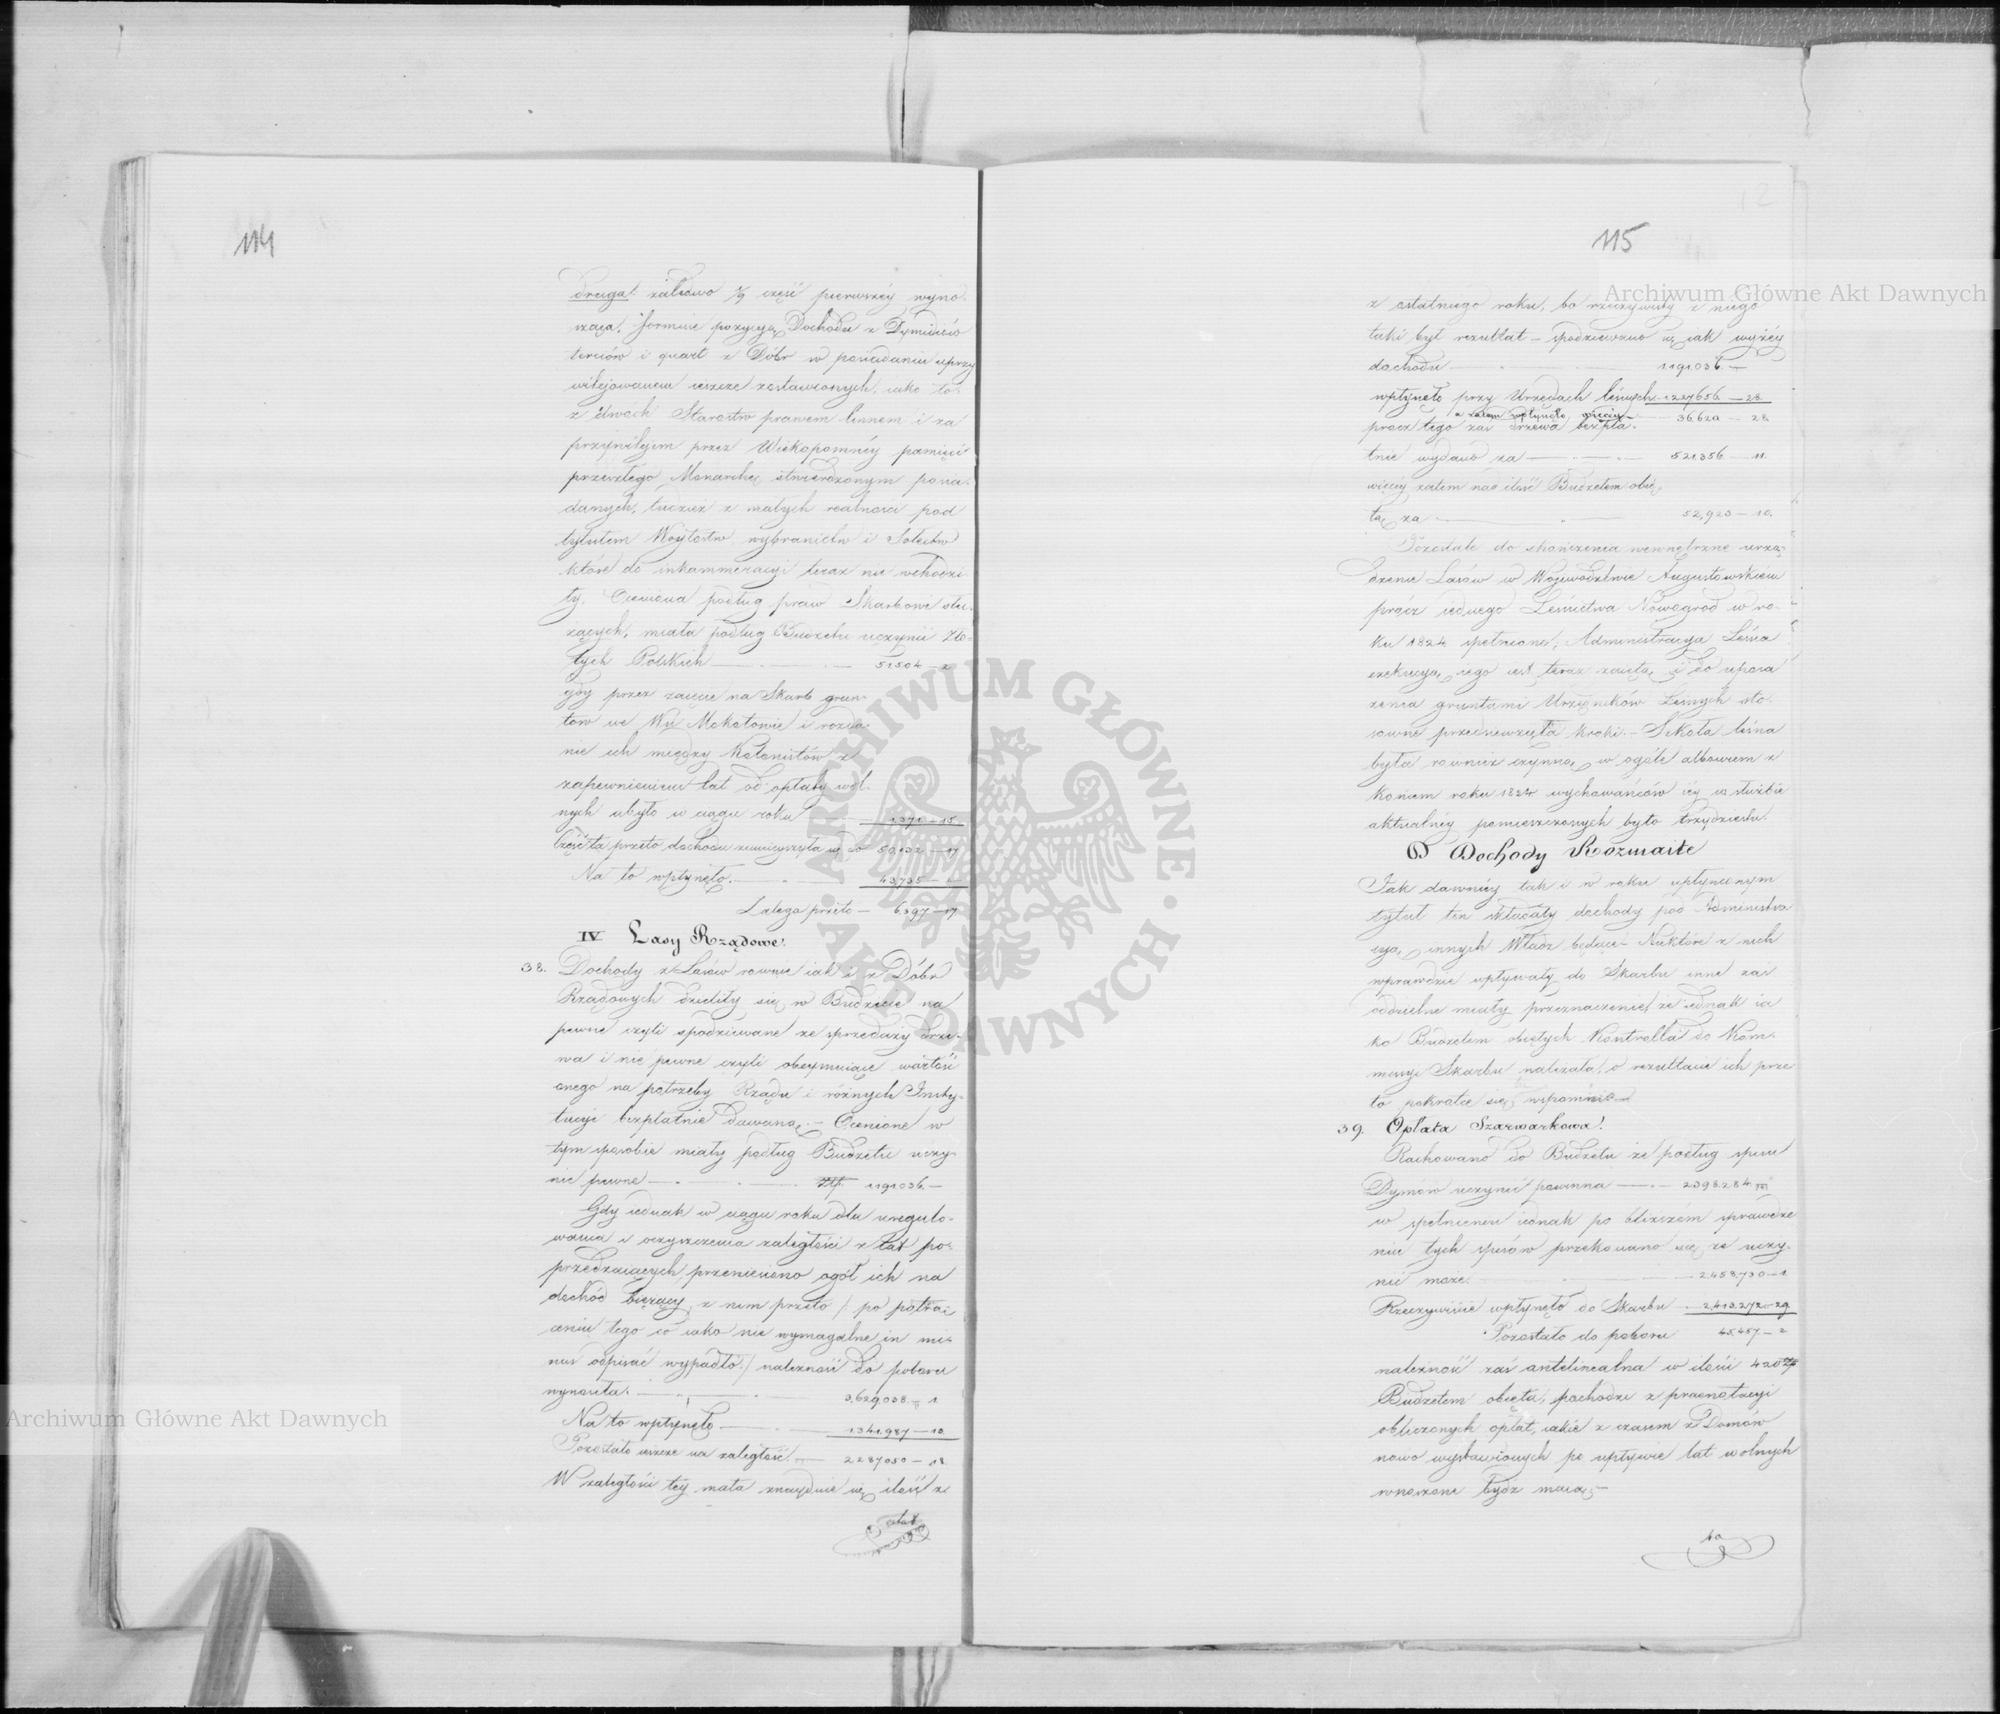 114
druga! zaledwo 1/9 część pierwszéy wyno-
sząca, formuie pozycyą Dochodu z Dymissiów
terciów i quart z Dóbr w posiadaniu uprzy
wilejowanem ieszcze zostawionych, iako to:
z dwóch Starostw prawem linnem i za
przywilejem przez Wiekopomnéy pamięci
przeszłego Monarchę stwierdzonym posia-
danych, tudzież z małych realności pod
tytułem Woytostw, wybraniectw i Sołectw
które do inkammeracyi teraz nie wchodzi-
ły. Oceniona podług praw Skarbowi słu-
żących, miała podług Budżetu uczynić Zło-
tych Polskich — 51504 — 2
gdy przez zaięcie na Skarb grun-
tow we Wsi Mokotowie i rozda-
nie ich między Kolonistów z
zapewnieniem lat od opłaty wol-
nych ubyło w ciągu roku — 1371 — 15
Część ta przeto dochodu zmnieyszyła się do 50,132 — 17
Na to wpłynęło — 43735 — —
Zalega przeto — 6397 — 17
IV Lasy Rządowe.
38. Dochody z Lasów rownie iak i z Dóbr
Rządowych dzieliły się w Budżecie na
pewne czyli spodziewane ze sprzedaży drze-
wa i nie pewne czyli obeymuiące wartość
onego na potrzeby Rządu i różnych Insty-
tucyi bezpłatnie dawaną. — Ocenione w
tym sposobie miały podług Budżetu uczy-
nić pewne — Złp. 1191036. —
Gdy iednak w ciągu roku dla uregulo-
wania i oczyszczenia zaległości z lat po-
przedzaiących przeniesiono ogół ich na
dochód bieżący, z nim przeto / po potrą-
ceniu tego co iako nie wymagalne in mi-
nus odpisać wypadło / należność do poboru
wynosiła — 3,629,038 — 1
Na to wpłynęło — 1341,987 — 13
Pozostało ieszcze na zaległość — 2287050 — 18
W zaległości téy mała znayduie się ilość z
ostat
115
z ostatniego roku, bo rzeczywisty z niego
taki był rezultat — spodziewano się iak wyżéy
dochodu — 1191036. —
wpłynęło przy Urzędach leśnych — 1227656 — 28
a zatem wpłynęło więcéy — 36620 — 28
procz tego zaś drzewa bezpła-
tnie wydano za — 521356 — 11.
więcéy zatem nad ilość Budżetem obię-
tą za — 52,920 — 10.
Pozostałe do skończenia wewnętrzne urzą-
dzenie Lasów w Województwie Augustowskiem
prócz iednego Leśnictwa Nowogrod w ro-
ku 1824 spełnione, Administracya Leśna
exekucyą iego iest teraz zaięta, i do uposa
żenia gruntami Urzędników Leśnych sto-
sowne przedsiewzięła kroki. — Szkoła leśna
była rownież czynną, w ogóle albowiem z
końcem roku 1824 wychowańców iéy w służbie
aktualnéy pomieszczonych było trzydziestu.
D Dochody Rozmaite
Jak dawniéy tak i w roku upłynionym
tytuł ten składały dochody pod Administra
cyą innych Władz będące — Niektóre z nich
wprawdzie wpływały do Skarbu inne zaś
oddzielne miały przeznaczenie, że iednak ia
ko Budżetem obiętych Kontrolla do Kom-
missyi Skarbu należała, o rezultacie ich prze
to pokrotce się wspomni. —
39. Opłata Szarwarkowa.
Rachowano do Budżetu że podług spisu
Dymów uczynić powinna — 2398284.
w spełnieniu iednak po bliższém sprawdze
niu tych spisów przekonano się że uczy-
nić może — 2458730 — 1
Rzeczywiście wpłynęło do Skarbu — 2,413,272 — 29
Pozostało do poboru 45,457 — 2
należność zaś antelinealna w ilości 420 Złp
Budżetem obięta, pochodzi z praenotacyi
obliczonych opłat, iakie z czasem z Domów
nowo wystawionych po upływie lat wolnych
wnoszone bydź maią —
40
Archiwum Główne Akt Dawnych
Archiwum Główne Akt Dawnych
ARCHIWUM GŁÓWNE · AKT DAWNYCH ·